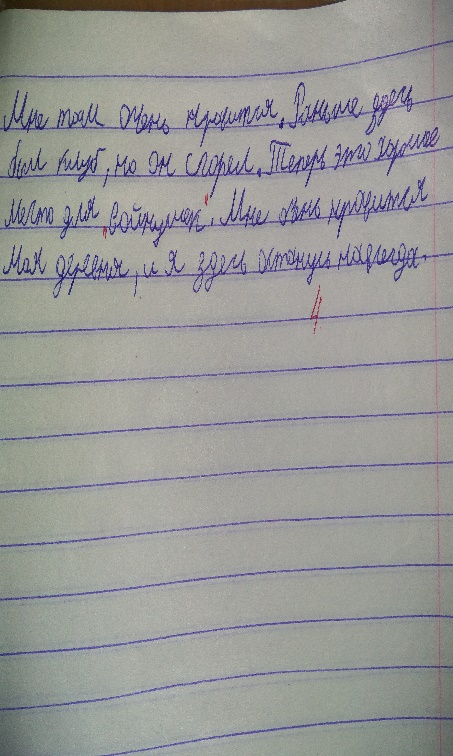 Мне там очень нравится. Раньше здесь
был клуб, но он сгорел. Теперь это хорошое
место для "войнушек". Мне очень нравится
моя деревня, и я здесь останусь навсегда.
4